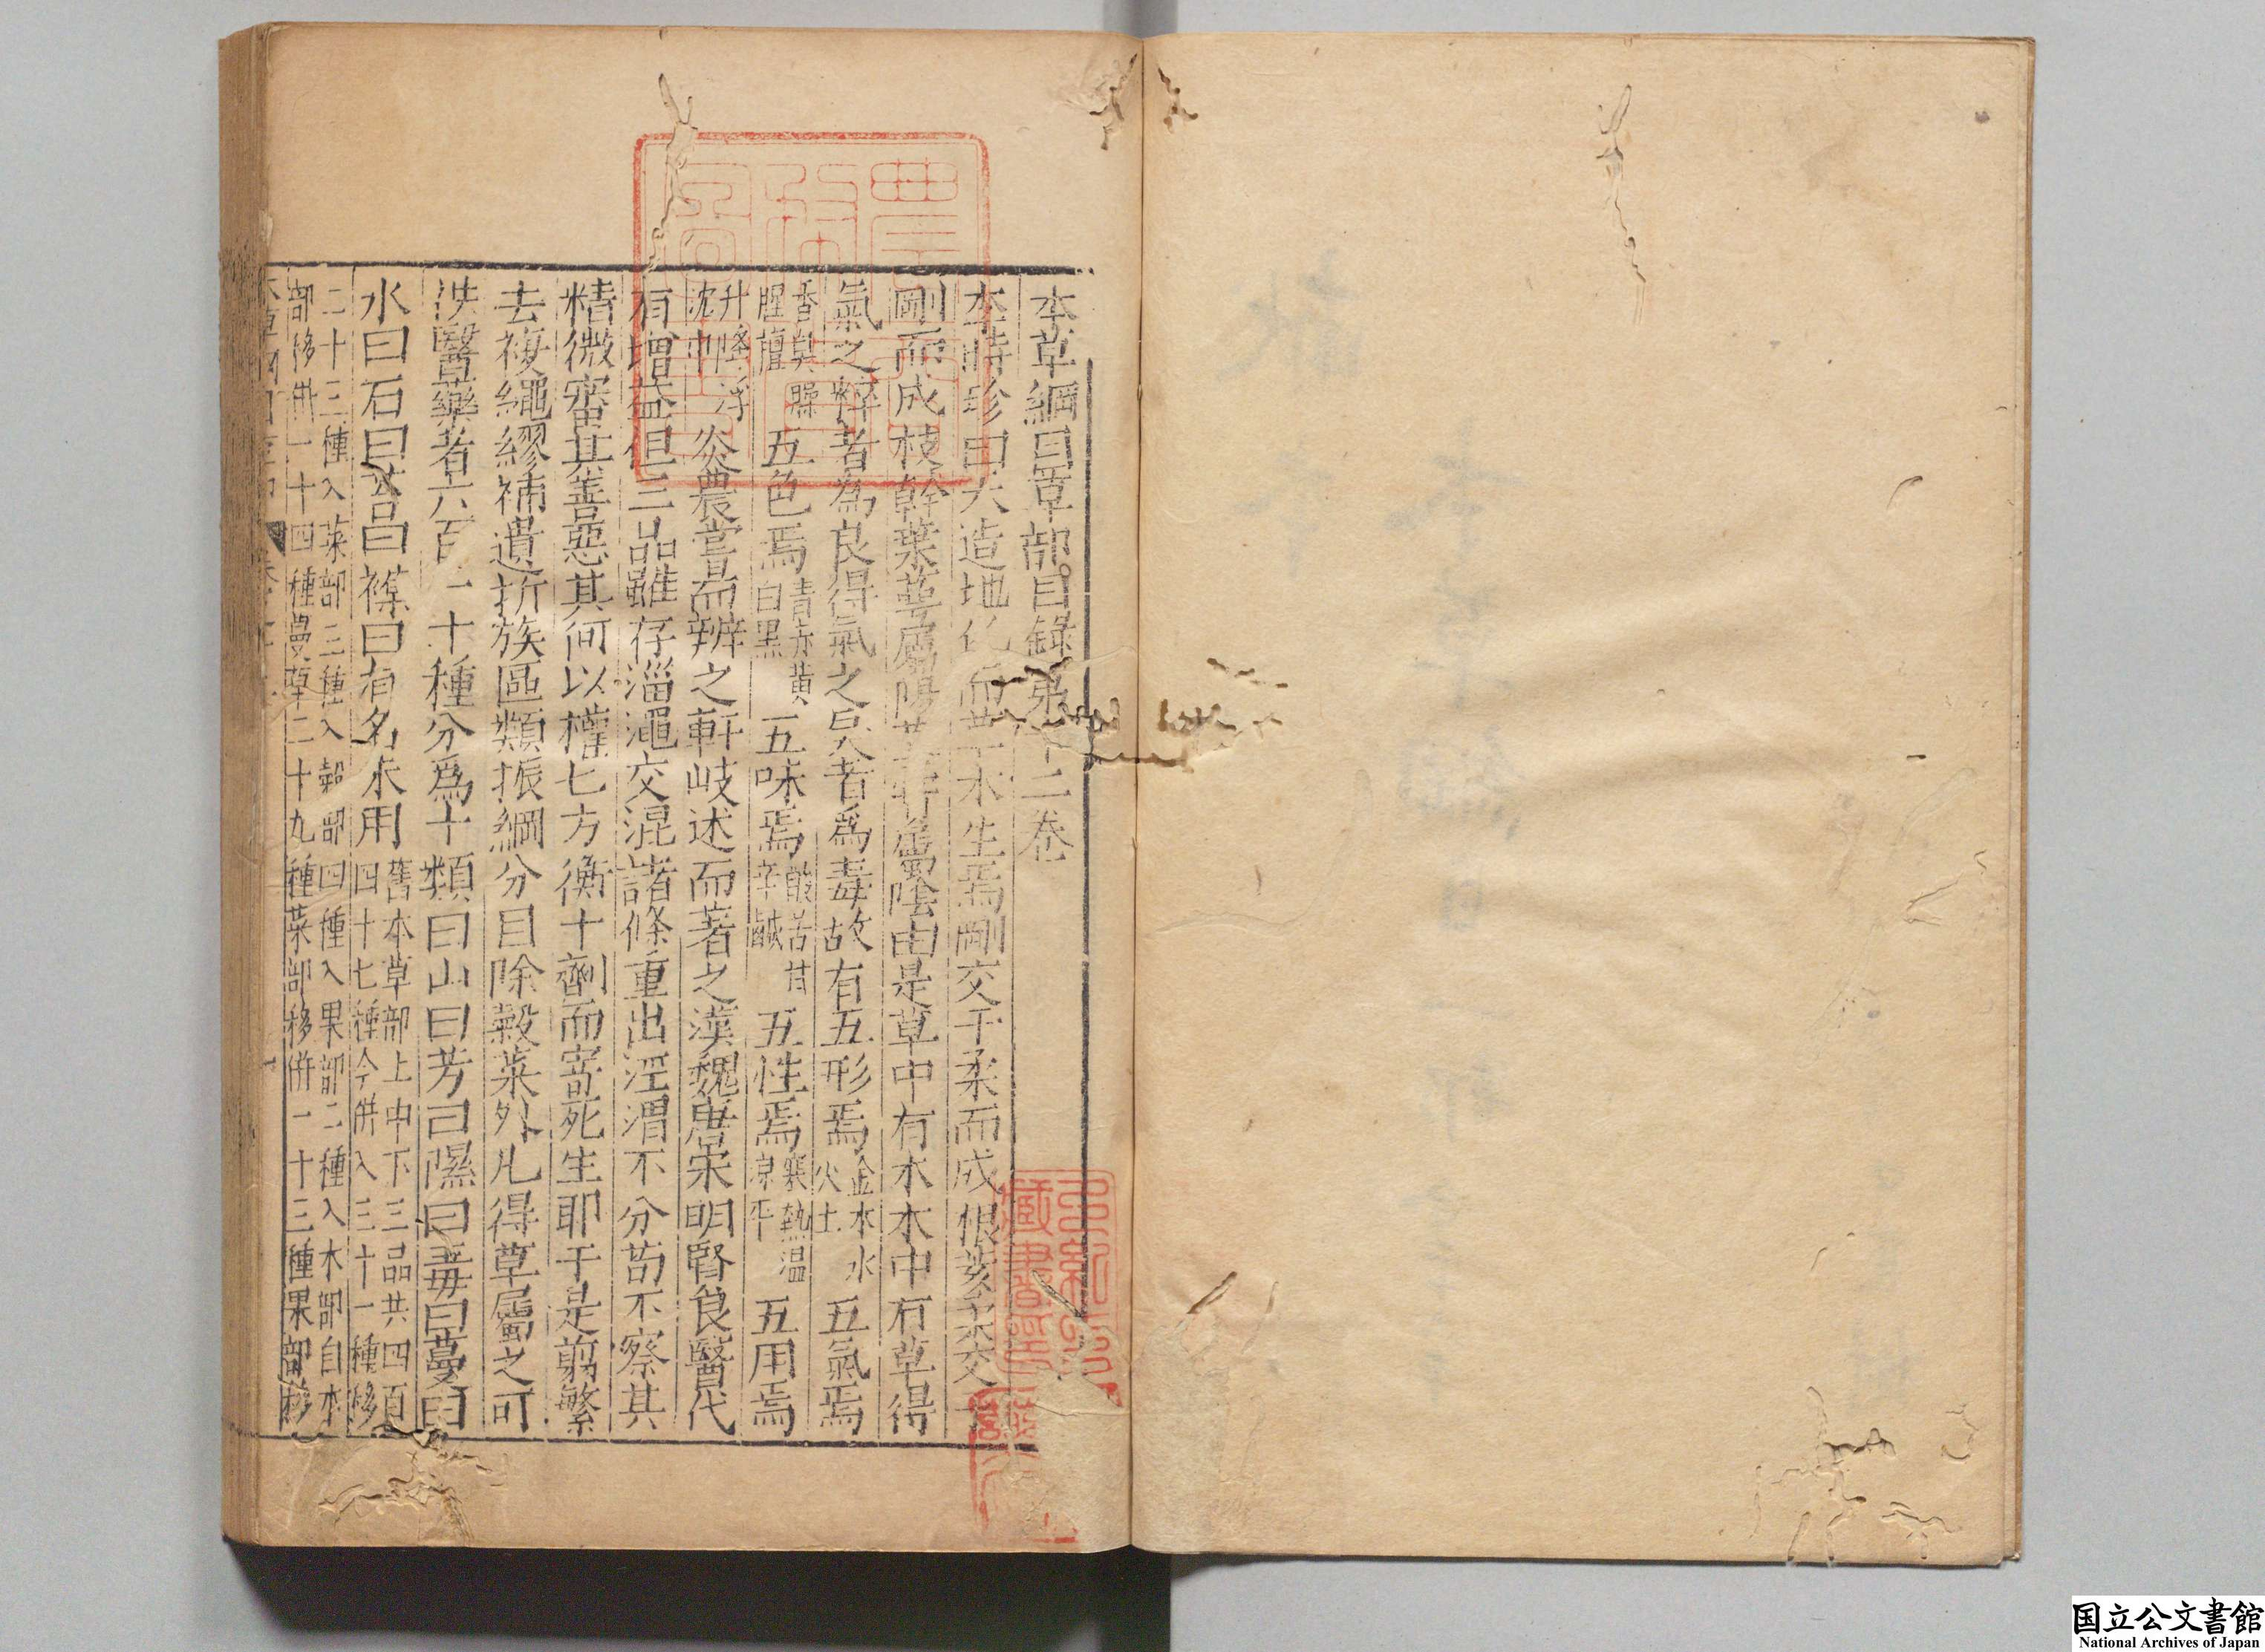 本草綱目草部目錄第十二卷
李時珍曰天造地化而草木生焉剛交于柔而成根荄柔交于
剛而成枝幹葉萼屬陽華實屬陰由是草中有木木中有草得
氣之粹者為良得氣之戾者爲毒故有五形焉金木水火土五氣焉
香臭臊腥膻五色焉青赤黃白黑五味焉酸苦甘辛鹹五性焉寒熱温凉平五用焉
升降浮沈中炎農嘗而辨之軒岐述而著之漢魏唐宋明賢良醫代
有增益但三品雖存淄澠交混諸條重出涇渭不分苟不察其
精微審其善惡其何以權七方衡十劑而寄死生耶于是翦繁
去複繩繆補遺折族區類振綱分目除穀菜外凡得草屬之可
供醫藥者六百一十種分爲十類曰山曰芳曰隰曰毒曰蔓曰
水曰石曰苔曰襍曰有名未用舊本草部上中下三品共四百四十七種今併入三十一種移
二十三種入菜部三種入穀部四種入果部二種入木部自本
部移併一十四種蔓草二十九種菜部移併一十三種果部移
国立公文書館
National Archives of Japan